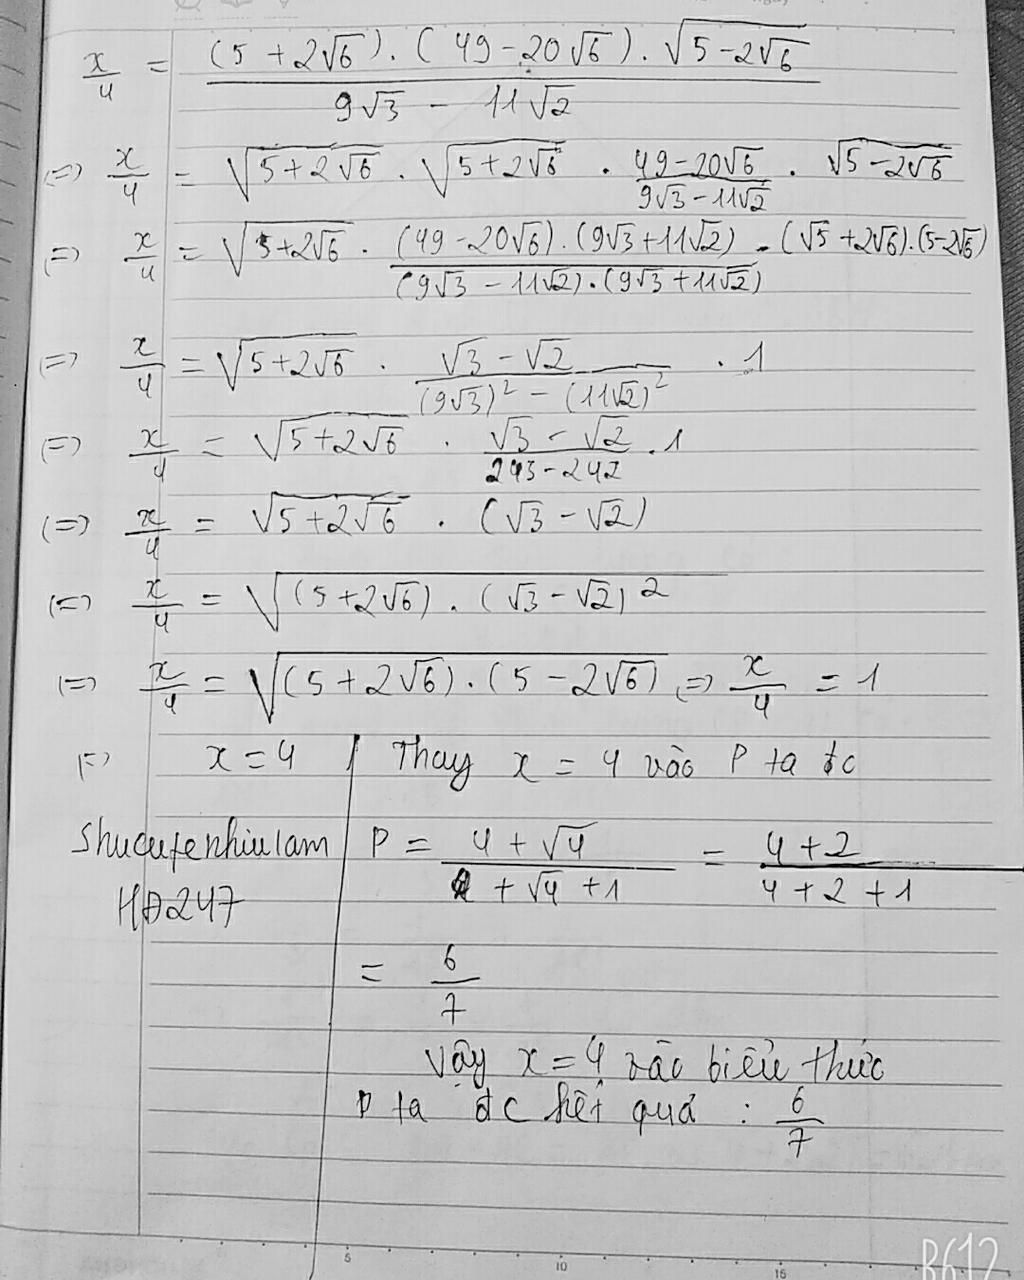 x/4 = ((5 + 2√6) . (49 - 20√6) . √(5 - 2√6)) / (9√3 - 11√2)
(=) x/4 = √(5 + 2√6) . √(5 + 2√6) . (49 - 20√6)/(9√3 - 11√2) . √(5 - 2√6)
(=) x/4 = √(5 + 2√6) . ((49 - 20√6) . (9√3 + 11√2))/((9√3 - 11√2) . (9√3 + 11√2)) . (√5 + 2√6) . (5 - 2√6)
(=) x/4 = √(5 + 2√6) . (√3 - √2)/((9√3)² - (11√2)²) . 1
(=) x/4 = √(5 + 2√6) . (√3 - √2)/(243 - 242) . 1
(=) x/4 = √(5 + 2√6) . (√3 - √2)
(=) x/4 = √((5 + 2√6) . (√3 - √2)²)
(=) x/4 = √((5 + 2√6) . (5 - 2√6)) (=) x/4 = 1
(=) x = 4
Thay x = 4 vào P ta đc
Shucutenhiulam
HĐ247
P = (4 + √4)/(4 + √4 + 1) = (4 + 2)/(4 + 2 + 1)
= 6/7
Vậy x = 4 vào biểu thức
P ta đc kết quả : 6/7
5 10 15
B612